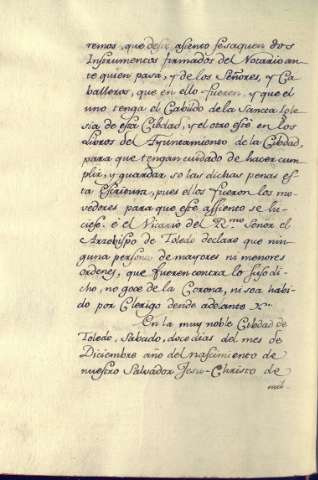 remos, que deste asiento se saquen dos
Instrumentos firmados del Notario an-
te quien pasa, y de los Señores, y Ca-
balleros, que en ello fueren, y que el
uno tenga el Cabildo de la Sancta Igle-
sia de esta Cibdad, y el otro esté en los
Libros del Ayuntamiento de la Cibdad,
para que tengan cuidado de hacer cum-
plir, y guardar so las dichas penas es-
ta Escritura, pues ellos fueron los mo-
vedores para que este assiento se hi-
ciese. é el Vicario del R.mo Señor el
Arzobispo de Toledo declaro que nin-
guna persona de mayores ni menores
ordenes, que fueren contra lo suso di-
cho, no goce de la Corona, ni sea habi-
do por Clerigo dende adelante
En la muy noble Cibdad de
Toledo, Sabado, doce dias del mes de
Diciembre año del nascimiento de
nuestro Salvador Jesu-Christo de
mil